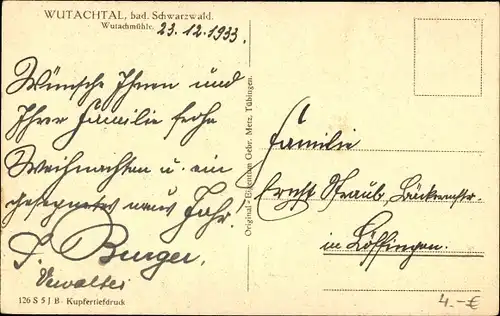 WUTACHTAL, bad. Schwarzwald.
Wutachmühle.
23.12.1933.
Wünsche Ihnen und
Ihrer Familie frohe
Weihnachten u. ein
gesegnetes neues Jahr.
Burger,
Verwalter
126 S 5 J B · Kupfertiefdruck
Original-Eigentum Gebr. Metz, Tübingen.
Familie
Straub, Bäckermstr.
in Löffingen.
4.-€